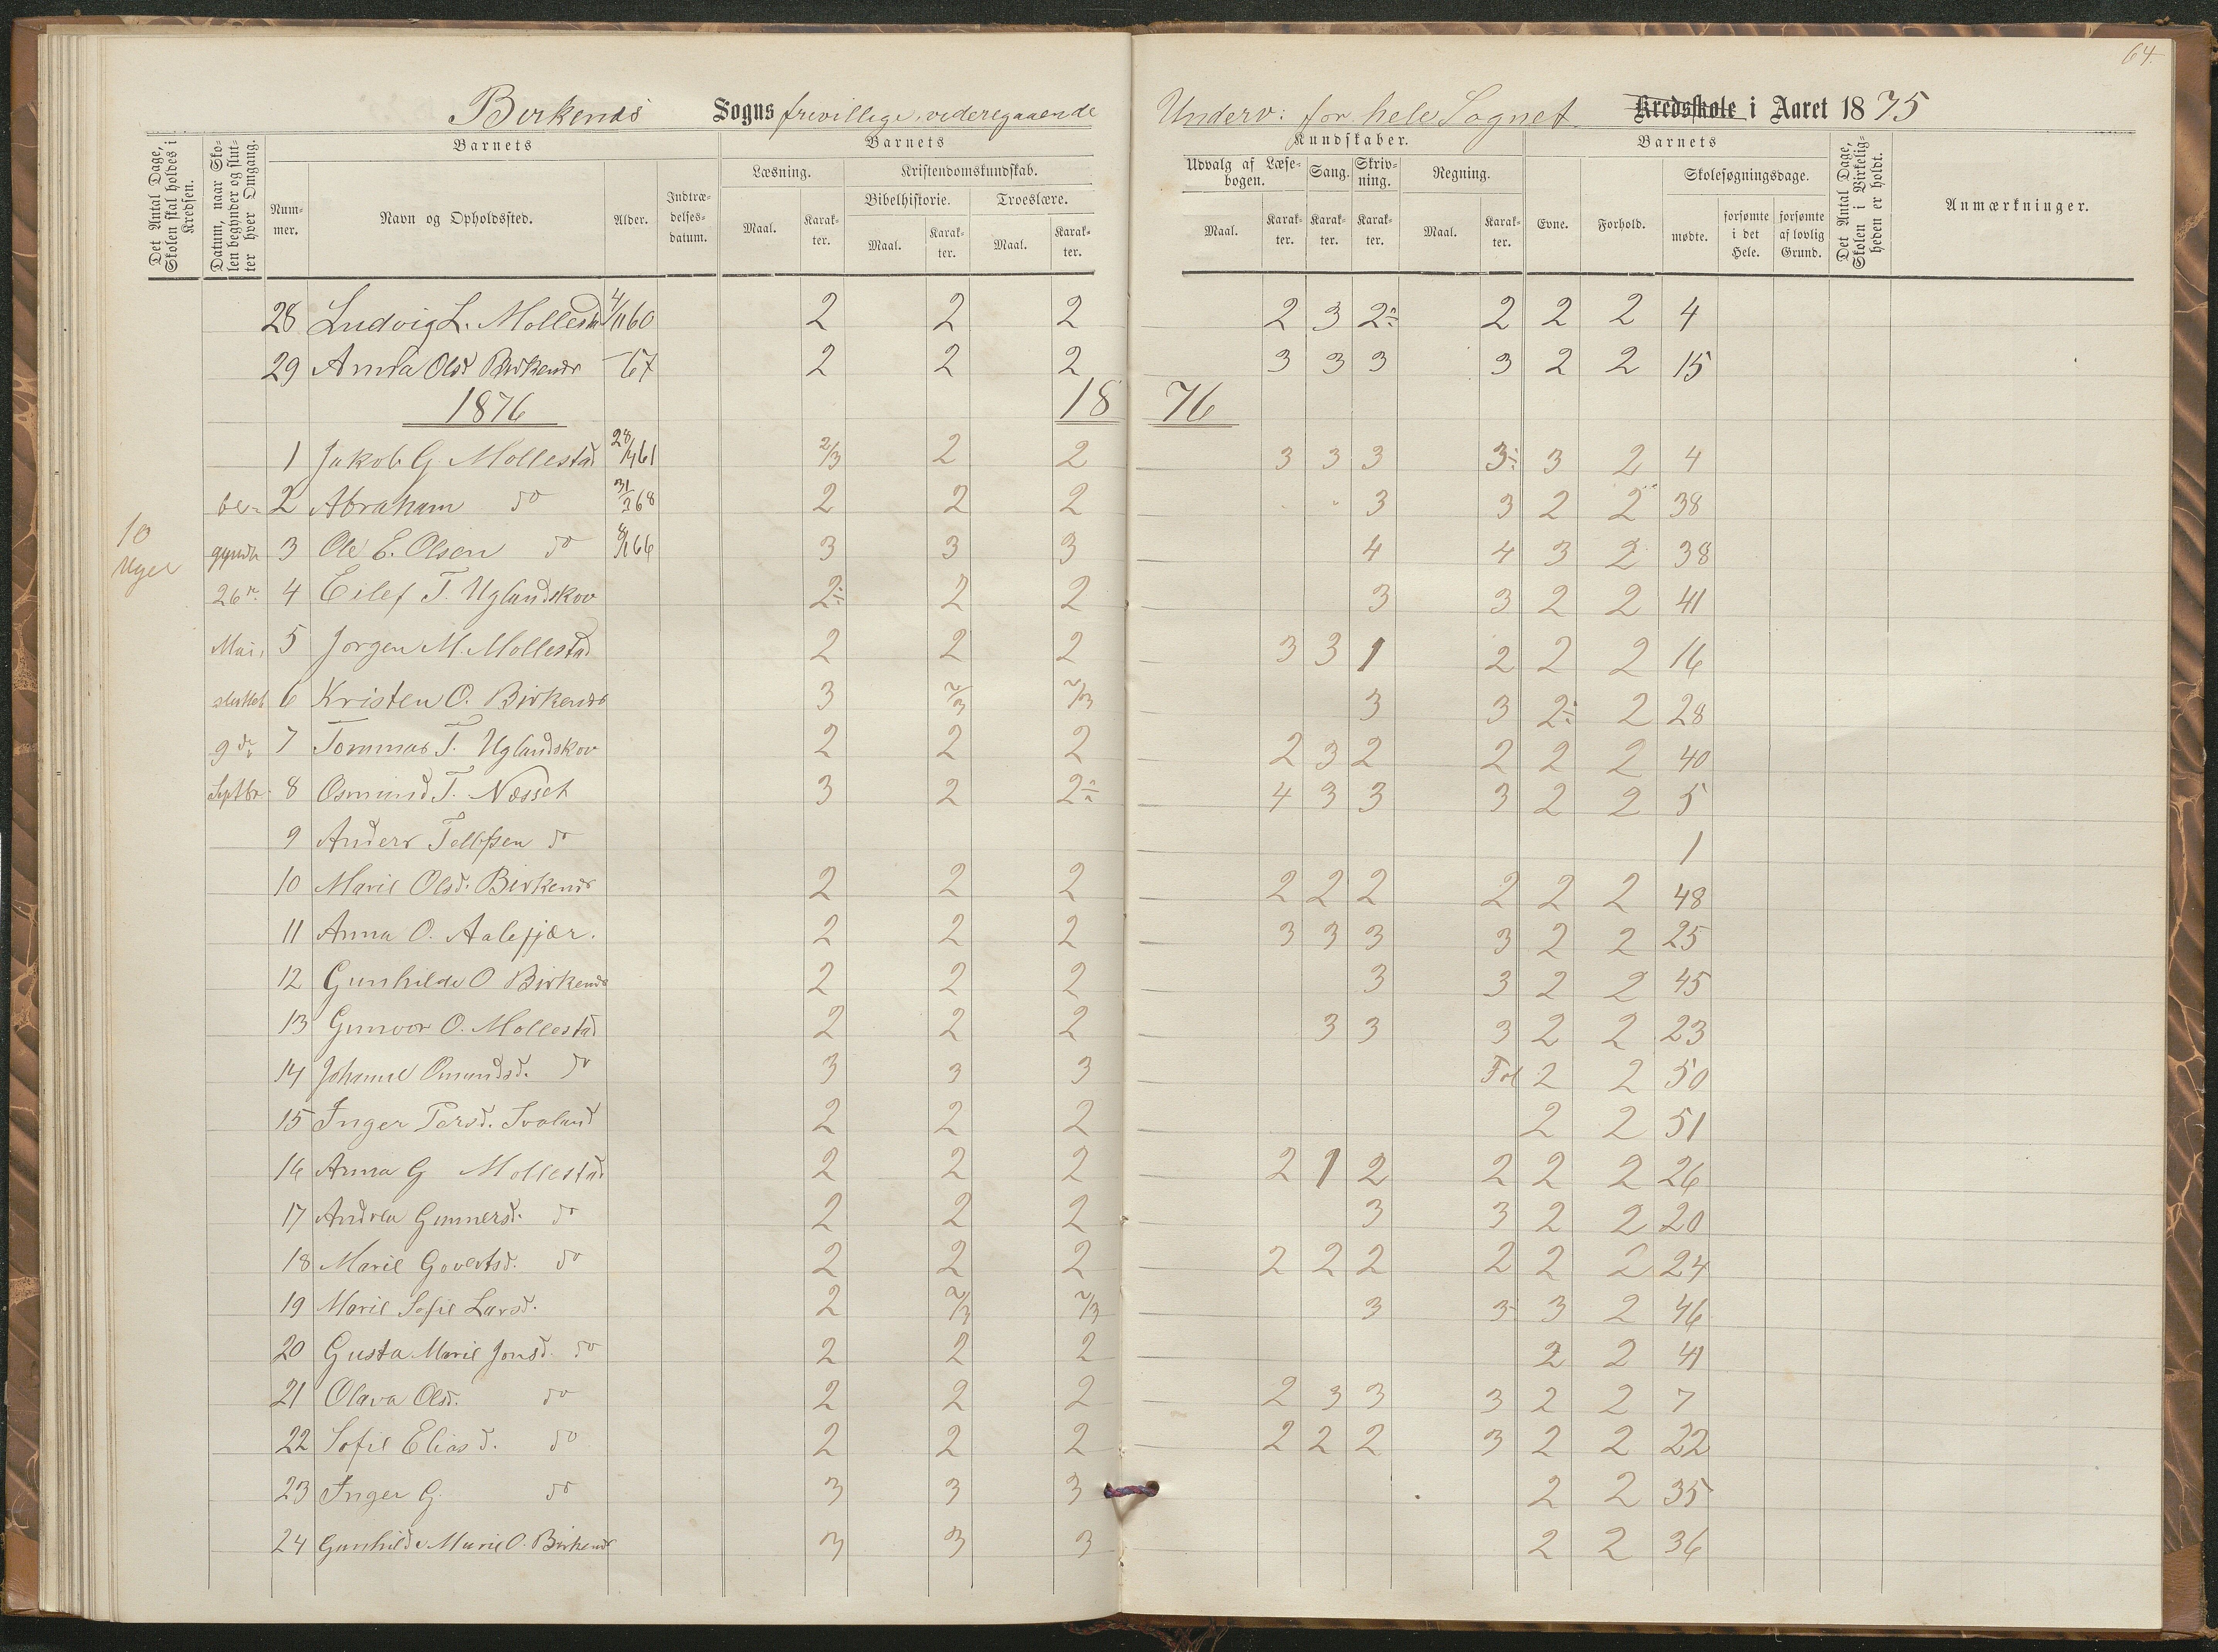 64.
Birkenæs Sogns frivillige videregaaende Underv: for hele Sognet Kredsskole i Aaret 1875
Det Antal Dage, Skolen skal holdes i Kredsen.
Datum, naar Skolen begynder og slutter hver Omgang.
Barnets
Nummer.
Navn og Opholdssted.
Alder.
Indtrædelsesdatum.
Barnets
Læsning.
Maal.
Karakter.
Kristendomskundskab.
Bibelhistorie.
Maal.
Karakter.
Troeslære.
Maal.
Karakter.
Kundskaber.
Udvalg af Læsebogen.
Maal.
Karakter.
Sang.
Karakter.
Skrivning.
Karakter.
Regning.
Maal.
Karakter.
Barnets
Evne.
Forhold.
Skolesøgningsdage.
mødte.
forsømte i det Hele.
forsømte af lovlig Grund.
Det Antal Dage, Skolen i Virkeligheden er holdt.
Anmærkninger.
28 Ludvig L. Mollestad 4/11 60 2 2 2 2 3 2÷ 2 2 2 4
29 Anna Olsd Birkenæs —67 2 2 2 3 3 3 3 2 2 15
1876 1876
1 Jakob G. Mollestad 2/3 2 2 3 3 3 3÷ 3 2 4
2 Abraham do 31/3 68 2 2 2 3 3 2 2 38
10 Uger
3 Ole E. Olsen do 3 3 3 4 4 3 2 38
26de 4 Eilef T. Uglandskov 2÷ 2 2 3 3 2 2 41
Mai, 5 Jørgen M. Mollestad 2 2 2 3 3 1 2 2 2 16
sluttet 6 Kristen O. Birkenæs 3 2/3 2/3 3 3 2÷ 2 28
9de 7 Tommas T. Uglandskov 2 2 2 2 3 2 2 2 2 40
Septbr. 8 Osmund T. Næsset 3 2 2÷ 4 3 3 3 2 2 5
9 Anders Tellefsen do 1
10 Marie Olsd. Birkenæs 2 2 2 2 2 2 2 2 2 48
11 Anna O. Aalefjær. 2 2 2 3 3 3 3 2 2 25
12 Gunhilde O Birkenæs 2 2 2 3 3 2 2 45
13 Gunvor O. Mollestad 2 2 2 3 3 3 2 2 23
14 Johanne Omundsd. do 3 3 3 2 2 50
15 Inger Persd. Svaland 2 2 2 2 2 51
16 Anna G Mollestad 2 2 2 2 1 2 2 2 2 26
17 Andrea Gunnersd. do 2 2 2 3 3 2 2 20
18 Marie Govertsd. do 2 2 2 2 2 2 2 2 2 24
19 Marie Sofie Larsd. 2 2/3 2/3 3 3 3 2 46
20 Gusta Marie Jonsd. do 2 2 2 2 2 41
21 Olava Olsd. do 2 2 2 2 3 3 3 2 2 7
22 Sofie Eliasd. do 2 2 2 2 2 2 3 2 2 22
23 Inger G. do 3 3 3 2 2 35
24 Gunhilde Marie O. Birkenæs 3 3 3 2 2 36